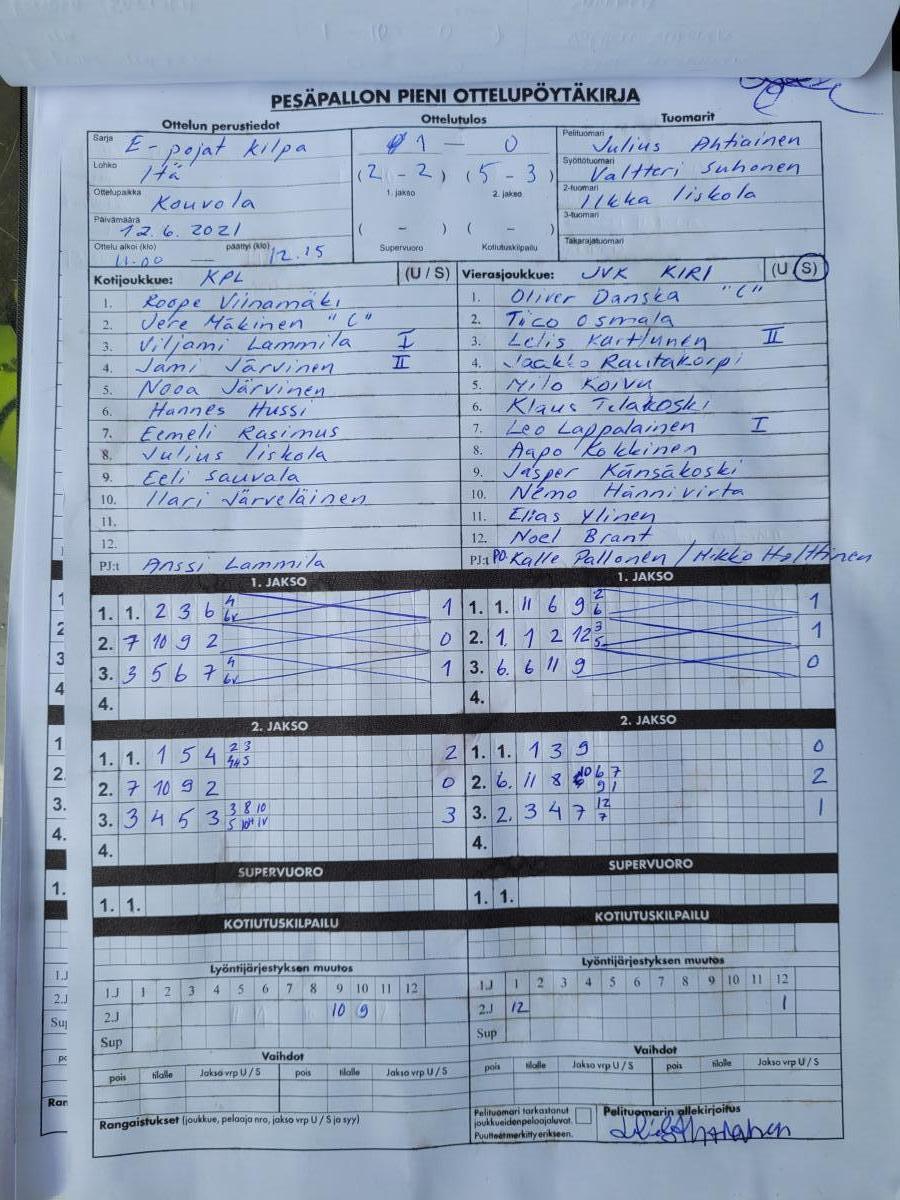 PESÄPALLON PIENI OTTELUPÖYTÄKIRJA
Ottelun perustiedot
Ottelutulos
Tuomarit
Sarja E-pojat kilpa
Lohko Itä
Ottelupaikka Kouvola
Päivämäärä 12.6.2021
Ottelu alkoi (klo) 11.00 — päättyi (klo) 12.15
1 — 0
(2 - 2) (5 - 3)
1. jakso 2. jakso
( - ) ( - )
Supervuoro Kotiutuskilpailu
Pelituomari Julius Ahtiainen
Syöttötuomari Valtteri Suhonen
2-tuomari Ilkka Iiskola
3-tuomari
Takarajatuomari
Kotijoukkue: KPL (U / S)
1. Roope Viinamäki
2. Jere Mäkinen "C"
3. Viljami Lammila I
4. Jami Järvinen II
5. Nooa Järvinen
6. Hannes Hussi
7. Eemeli Rasimus
8. Julius Iiskola
9. Eeli Sauvala
10. Ilari Järveläinen
11.
12.
PJ:t Anssi Lammila
Vierasjoukkue: JVK KIRI (U / S)
1. Oliver Danska "C"
2. Tico Osmala
3. Lelis Karttunen II
4. Jaakko Rautakorpi
5. Milo Koivu
6. Klaus Telakoski
7. Leo Lappalainen I
8. Aapo Kokkinen
9. Jasper Känsäkoski
10. Nemo Hännivirta
11. Elias Ylinen
12. Noel Brant
PJ:t PO. Kalle Pallonen / Mikko Holttinen
1. JAKSO
1. 1. 2 3 6 4 6v 1
2. 7 10 9 2 0
3. 3 5 6 7 4 6v 1
4.
1. JAKSO
1. 1. 11 6 9 2 6 1
2. 1. 1 2 12 3 5 1
3. 6. 6 11 9 0
4.
2. JAKSO
1. 1. 1 5 4 2 3 2
2. 7 10 9 2 0
3. 3 4 5 3 3 8 10 5 10H 1v 3
4.
2. JAKSO
1. 1. 1 3 9 0
2. 6. 11 8 10 6 7 9 1 2
3. 2. 3 4 7 12 7 1
4.
SUPERVUORO
1. 1.
SUPERVUORO
1. 1.
KOTIUTUSKILPAILU
KOTIUTUSKILPAILU
Lyöntijärjestyksen muutos
1.J 1 2 3 4 5 6 7 8 9 10 11 12
2.J 10 9
Sup
Lyöntijärjestyksen muutos
1.J 1 2 3 4 5 6 7 8 9 10 11 12
2.J 12 1
Sup
Vaihdot
pois tilalle Jakso vrp U / S pois tilalle Jakso vrp U / S
Vaihdot
pois tilalle Jakso vrp U / S pois tilalle Jakso vrp U / S
Rangaistukset (joukkue, pelaaja nro, jakso vrp U / S ja syy)
Pelituomari tarkastanut
joukkueidenpelaajaluvat.
Puutteetmerkitty erikseen.
Pelituomarin allekirjoitus